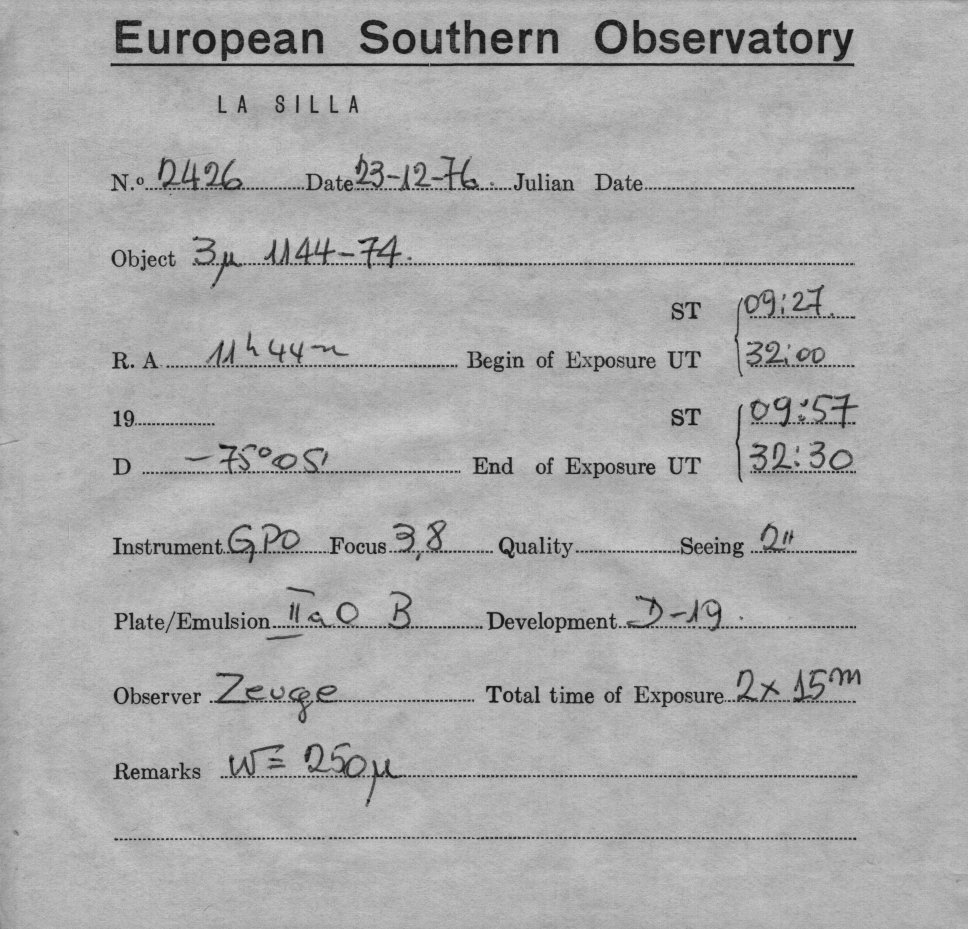 European Southern Observatory
LA SILLA
N.º 2426 Date 23-12-76. Julian Date
Object 3µ 1144-74.
ST 09:27
R. A 11h 44m Begin of Exposure UT 32:00
19 ST 09:57
D -75°05' End of Exposure UT 32:30
Instrument GPO Focus 3,8 Quality Seeing 2"
Plate/Emulsion IIaO B Development D-19.
Observer Zeuge Total time of Exposure 2x 15m
Remarks W≡ 250µ